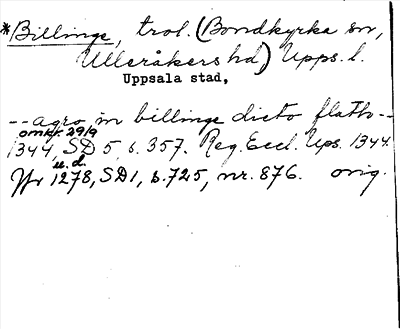 *Billinge, trol. (Bondkyrka sn,
Ulleråkers hd) Upps. l.
Uppsala stad,
--agro in billinge dicto flath--
omkr. 29/9
1344, SD 5, s. 357. Reg. Eccl. Ups. 1344.
u.d.
Yr 1278, SD 1, s. 725, nr. 876. orig.